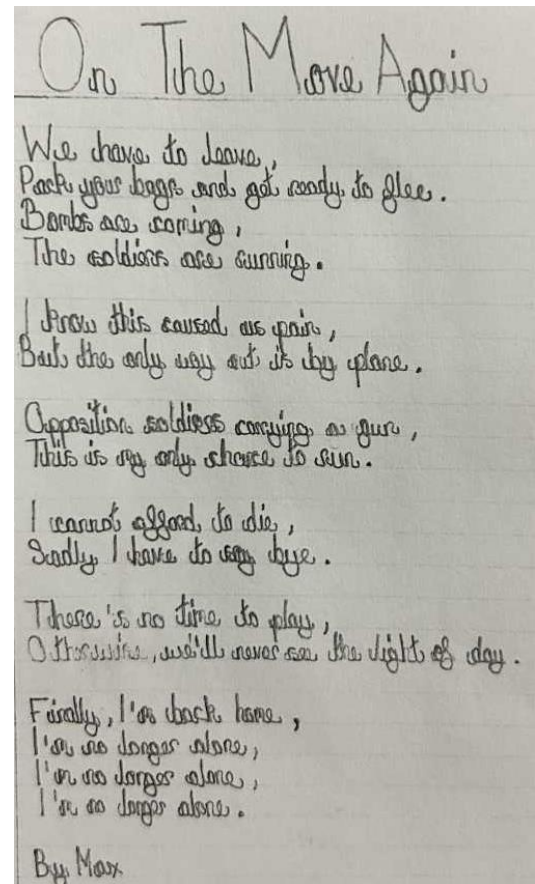 On The Move Again
We have to leave,
Pack your bags and get ready to flee.
Bombs are coming,
The soldiers are running.
I know this caused us pain,
But the only way out is by plane.
Opposition soldiers carrying a gun,
This is my only chance to run.
I cannot afford to die,
Sadly I have to say bye.
There's no time to play,
Otherwise, we'll never see the light of day.
Finally, I'm back home,
I'm no longer alone,
I'm no longer alone,
I'm no longer alone.
By Max